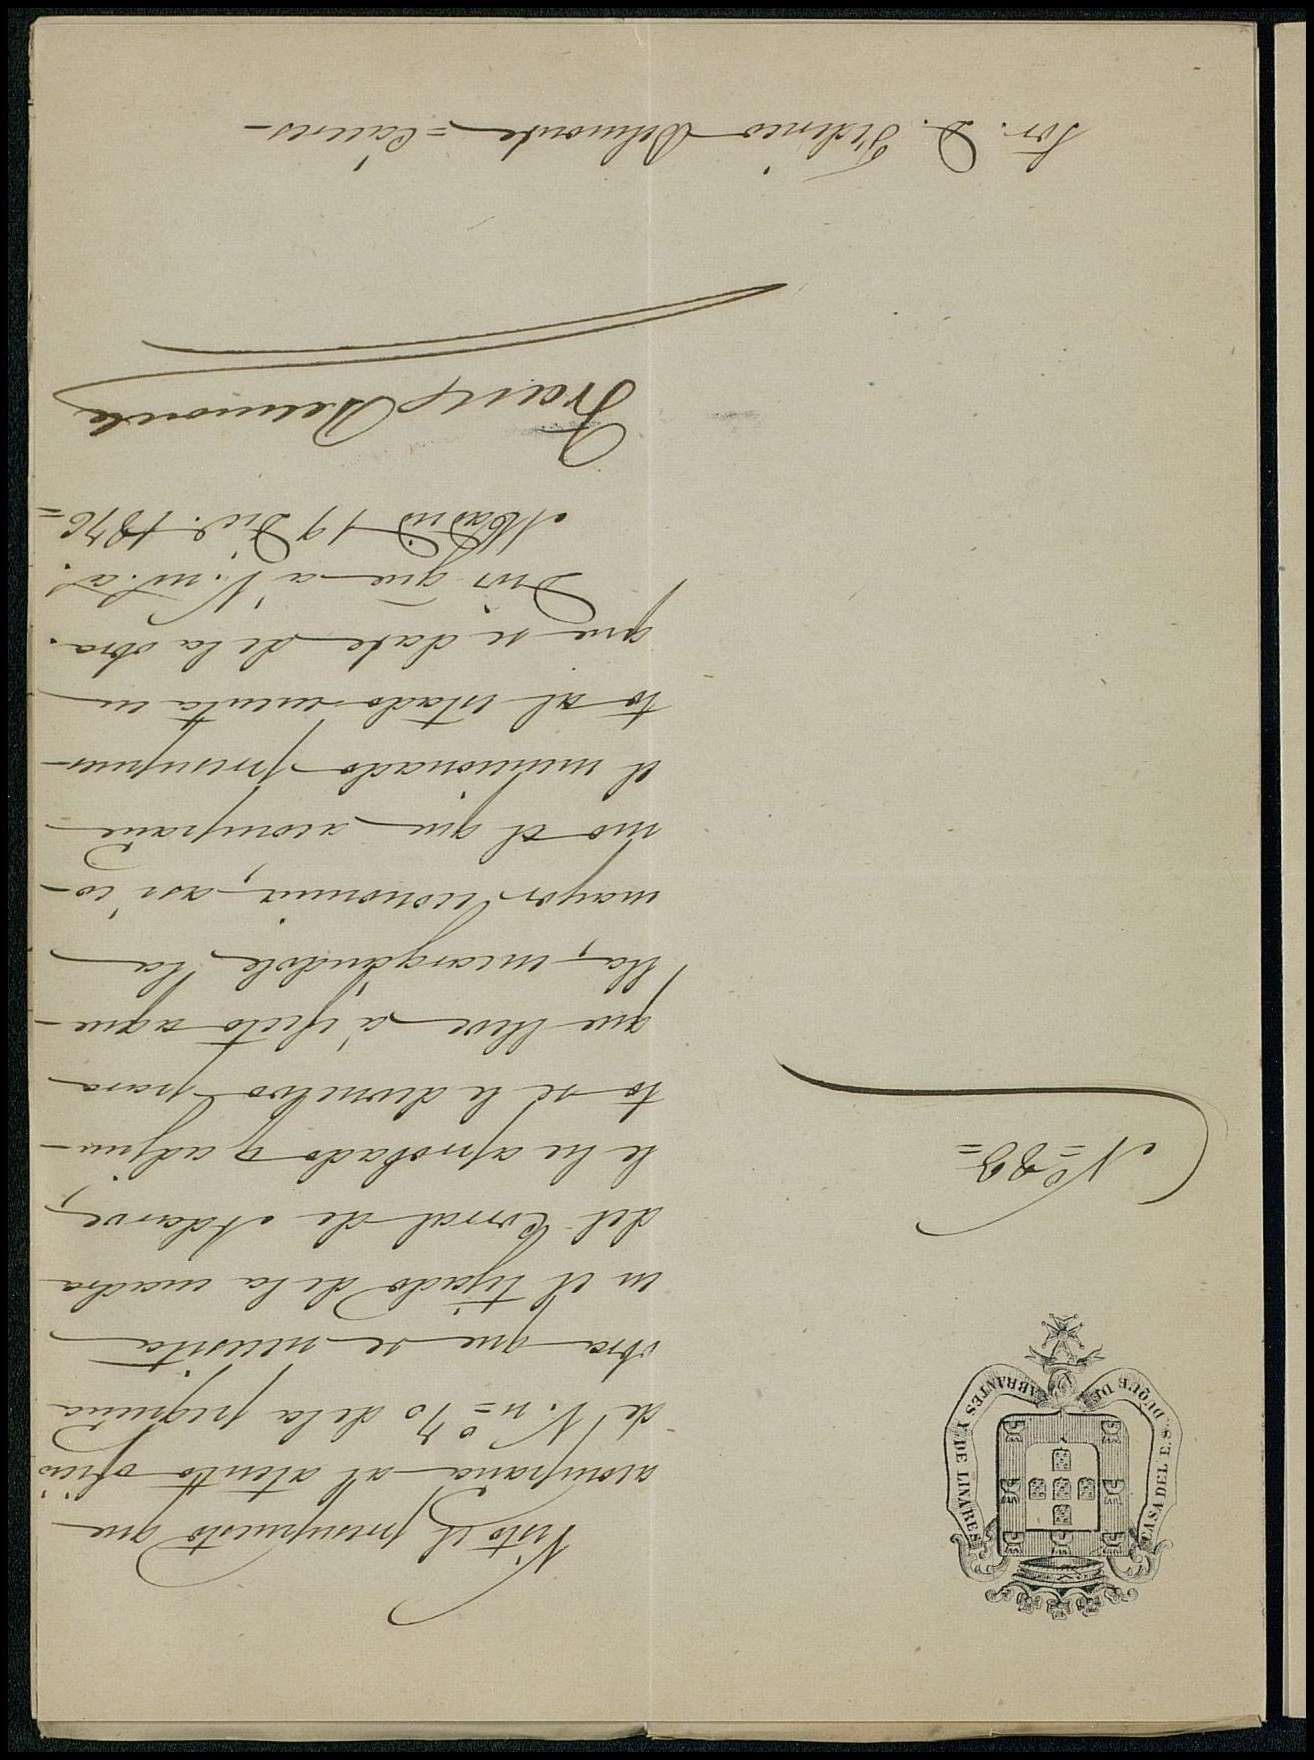 CASA DEL E. S. DUQUE DE ABRANTES Y DE LINARES
Nº 88=
Visto el presupuesto que
acompaña al atento oficio
de V. nº 70 de la pequeña
obra que se necesita
en el tejado de la cuadra
del Corral de Adarve,
le he aprobado y adjun-
to se le devuelvo para
que lleve á efecto aque-
lla, encargándole la
mayor economía, así có-
mo el que acompañe
el mencionado presupues-
to al estado cuenta en
que se date de la obra.
Dios gue á V. m.s a.s
Madrid 19 Dic.e 1876=
Franco Belmonte
Sor. D. Federico Belmonte = Cáceres-